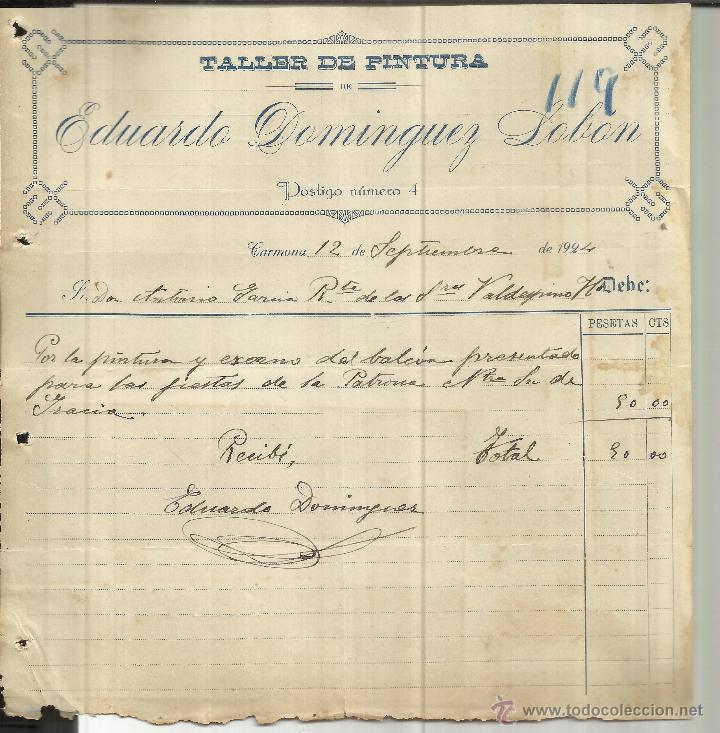 TALLER DE PINTURA
DE
119
Eduardo Dominguez Lobon
Postigo número 4
Carmona 12 de Septiembre de 1924
Sr. Don Antonio Garcia Rte de los Sres Valdespino Hs Debe:
PESETAS CTS
Por la pintura y exorno del balcón presentado
para las fiestas de la Patrona Ntra Sra de
Gracia. 50 00
Recibí, Total 50 00
Eduardo Dominguez
todocoleccion
www.todocoleccion.net